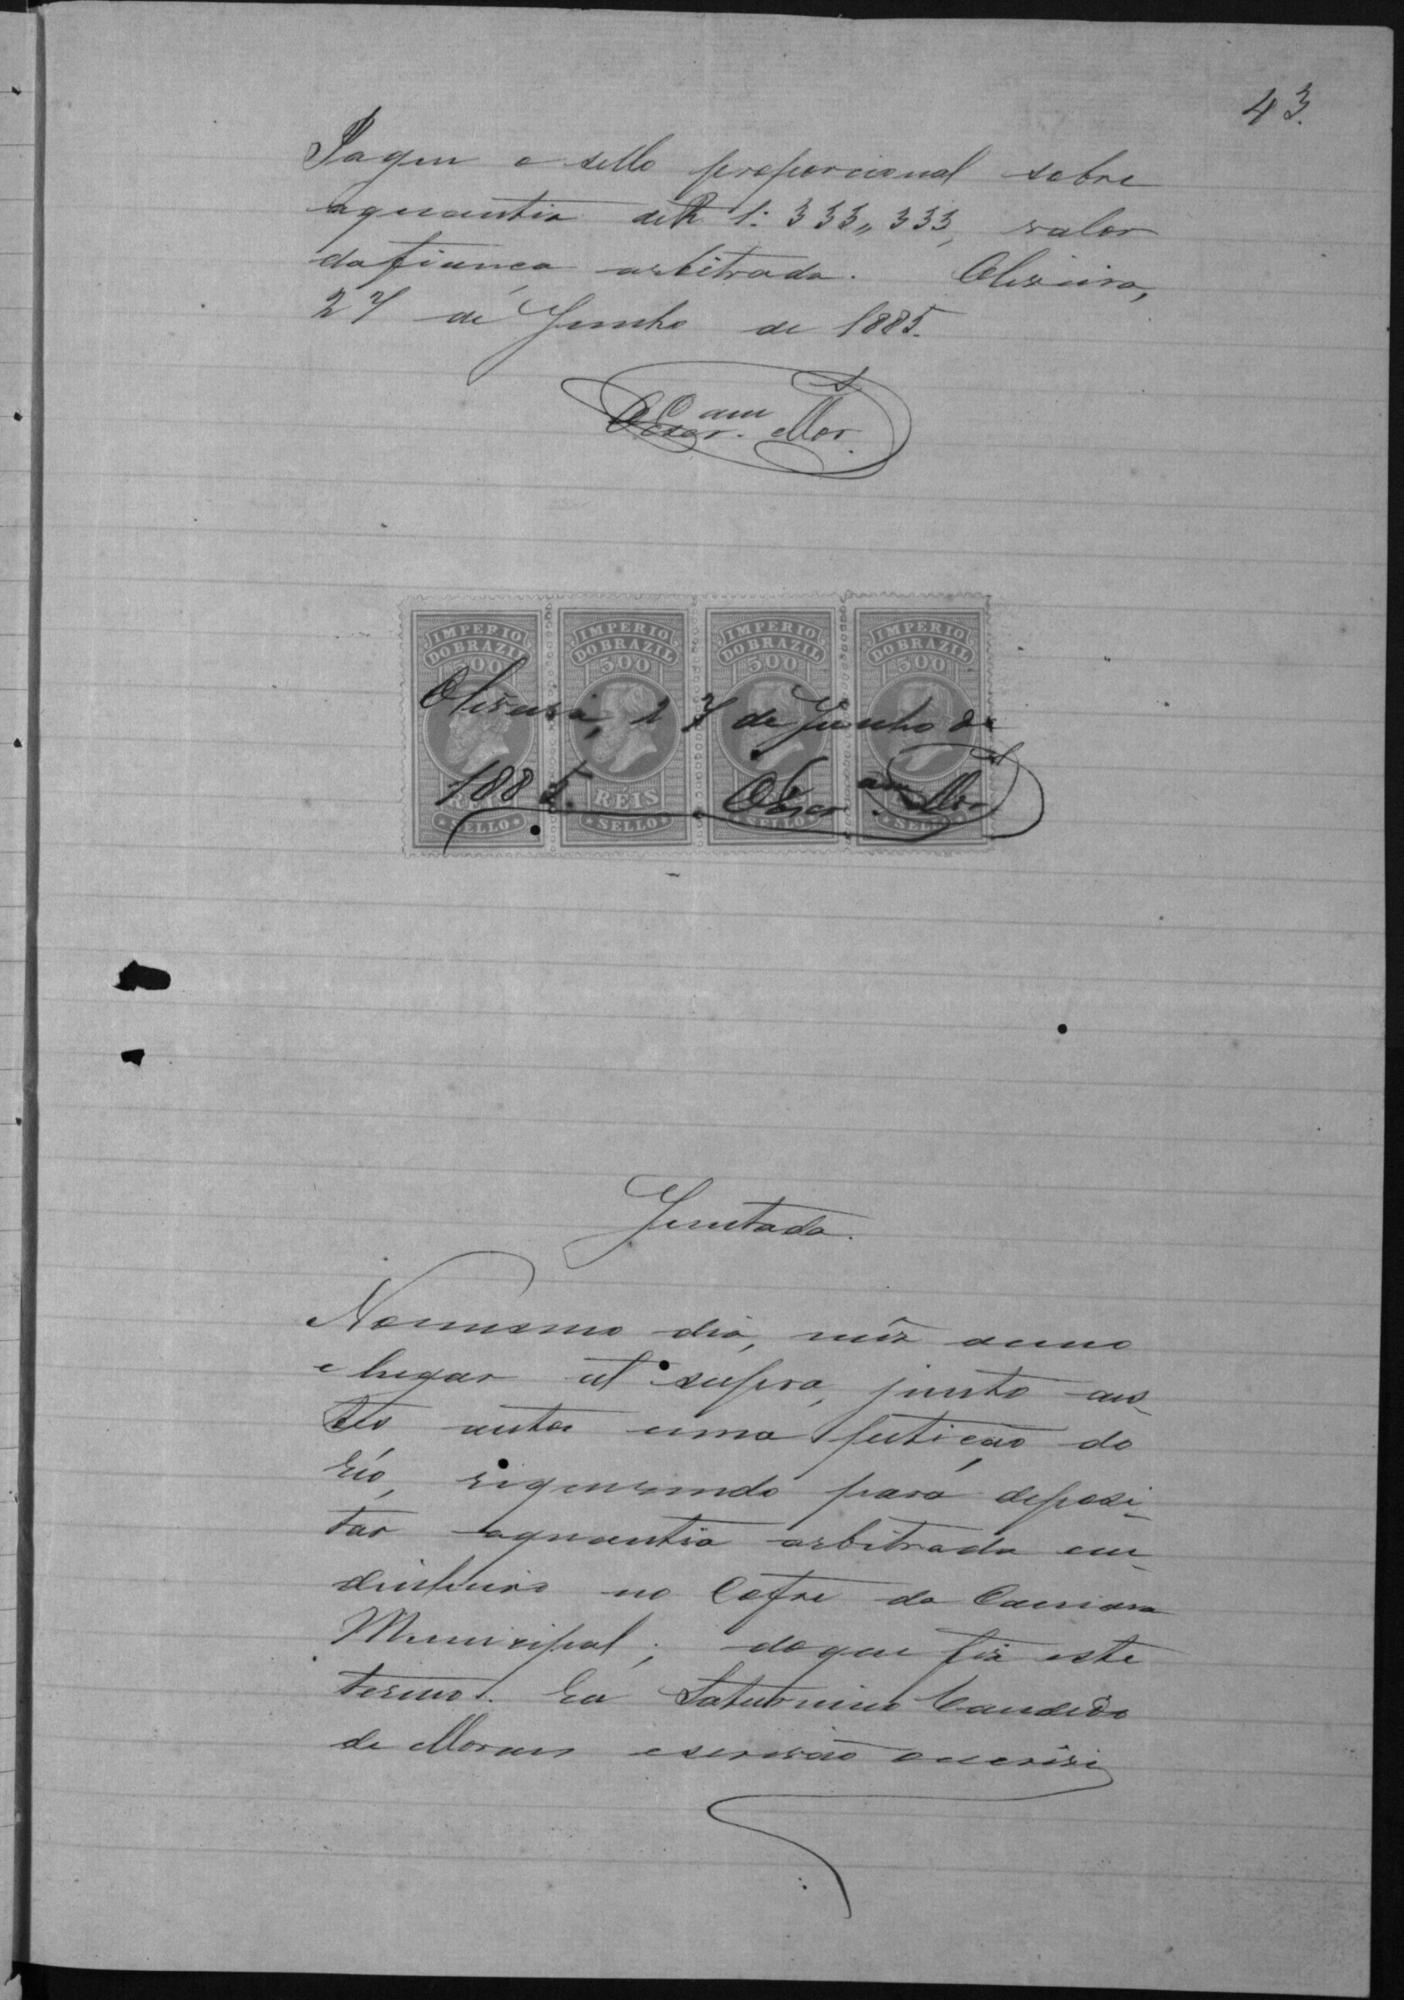 43.
Pagou o sello proporcional sobre
aquantia de R 1: 333,, 333, valor
dafiança arbitrada. Oliveira,
27 de Junho de 1885.
OEscr.am Mor.s
IMPERIO DO BRAZIL 500 RÉIS SELLO
IMPERIO DO BRAZIL 500 RÉIS SELLO
IMPERIO DO BRAZIL 500 RÉIS SELLO
IMPERIO DO BRAZIL 500 RÉIS SELLO
Oliveira, 27 de Junho de
1885. OEscr.am Mor.s
Juntada.
Nomesmo dia, mês anno
e lugar ut supra, junto aes-
tes autos uma petição do
réo, requerendo para deposi-
tar aquantia arbitrada em
dinheiro no Cofre da Camara
Municipal; doque fiz este
termo. Eu Saturnino Candido
de Moraes escrivão oescrivi